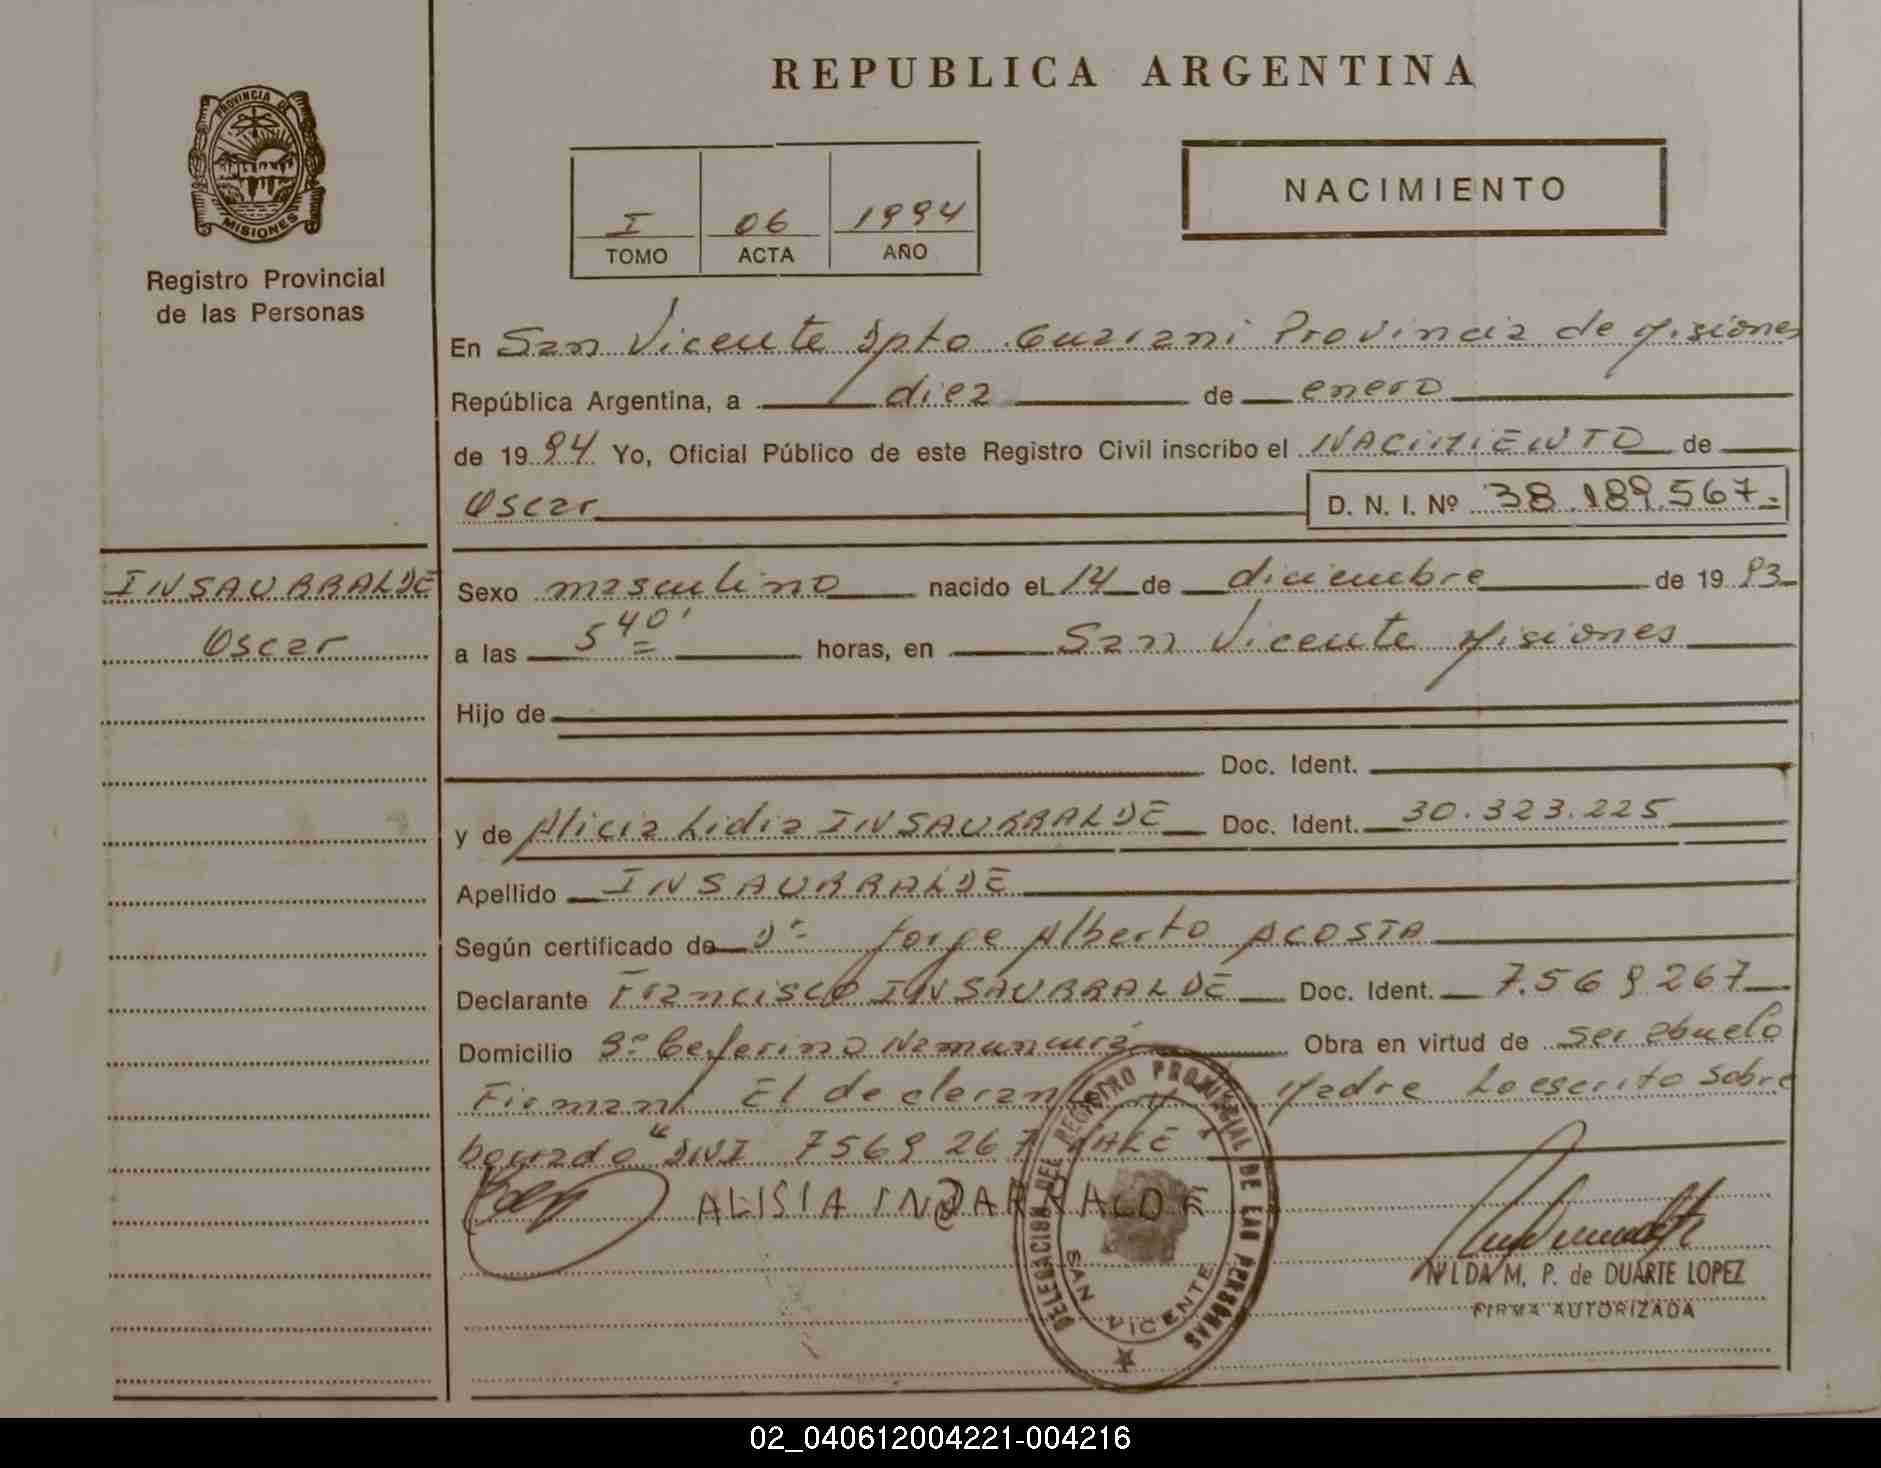 REPUBLICA ARGENTINA
PROVINCIA DE
MISIONES
Registro Provincial
de las Personas
I 06 1994
TOMO ACTA AÑO
NACIMIENTO
En San Vicente Dpto. Guarani Provincia de Misiones
República Argentina, a diez de enero
de 1994 Yo, Oficial Público de este Registro Civil inscribo el NACIMIENTO de
Oscar D. N. I. Nº 38.189.567.=
INSAURRALDE
Oscar
Sexo masculino nacido el 14 de diciembre de 1993
a las 5 40' horas, en San Vicente Misiones
Hijo de
Doc. Ident.
y de Alicia Lidia INSAURRALDE Doc. Ident. 30.323.225
Apellido INSAURRALDE
Según certificado de Dr Jorge Alberto ACOSTA
Declarante Francisco INSAURRALDE Doc. Ident. 7.569.267
Domicilio Bº Ceferino Namuncurá Obra en virtud de ser abuelo
Firman El Madre Lo escrito sobre
"DNI 7569267 VALE
ALISIA
DELEGACION DEL REGISTRO PROVINCIAL DE LAS PERSONAS
SAN VICENTE
NILDA M. P. de DUARTE LOPEZ
FIRMA AUTORIZADA
02_040612004221-004216